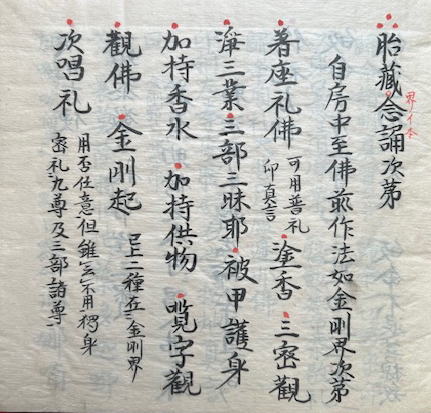 胎藏念誦次第
界イ本
自房中至佛前作法如金剛界次第
着座礼佛 可用普礼
印真言 塗香 三密觀
淨三業 三部三昧耶 被甲護身
加持香水 加持供物 覽字觀
觀佛 金剛起 已上二種在金剛界
次唱礼 用否任意但雖不用
密礼九尊及三部諸尊